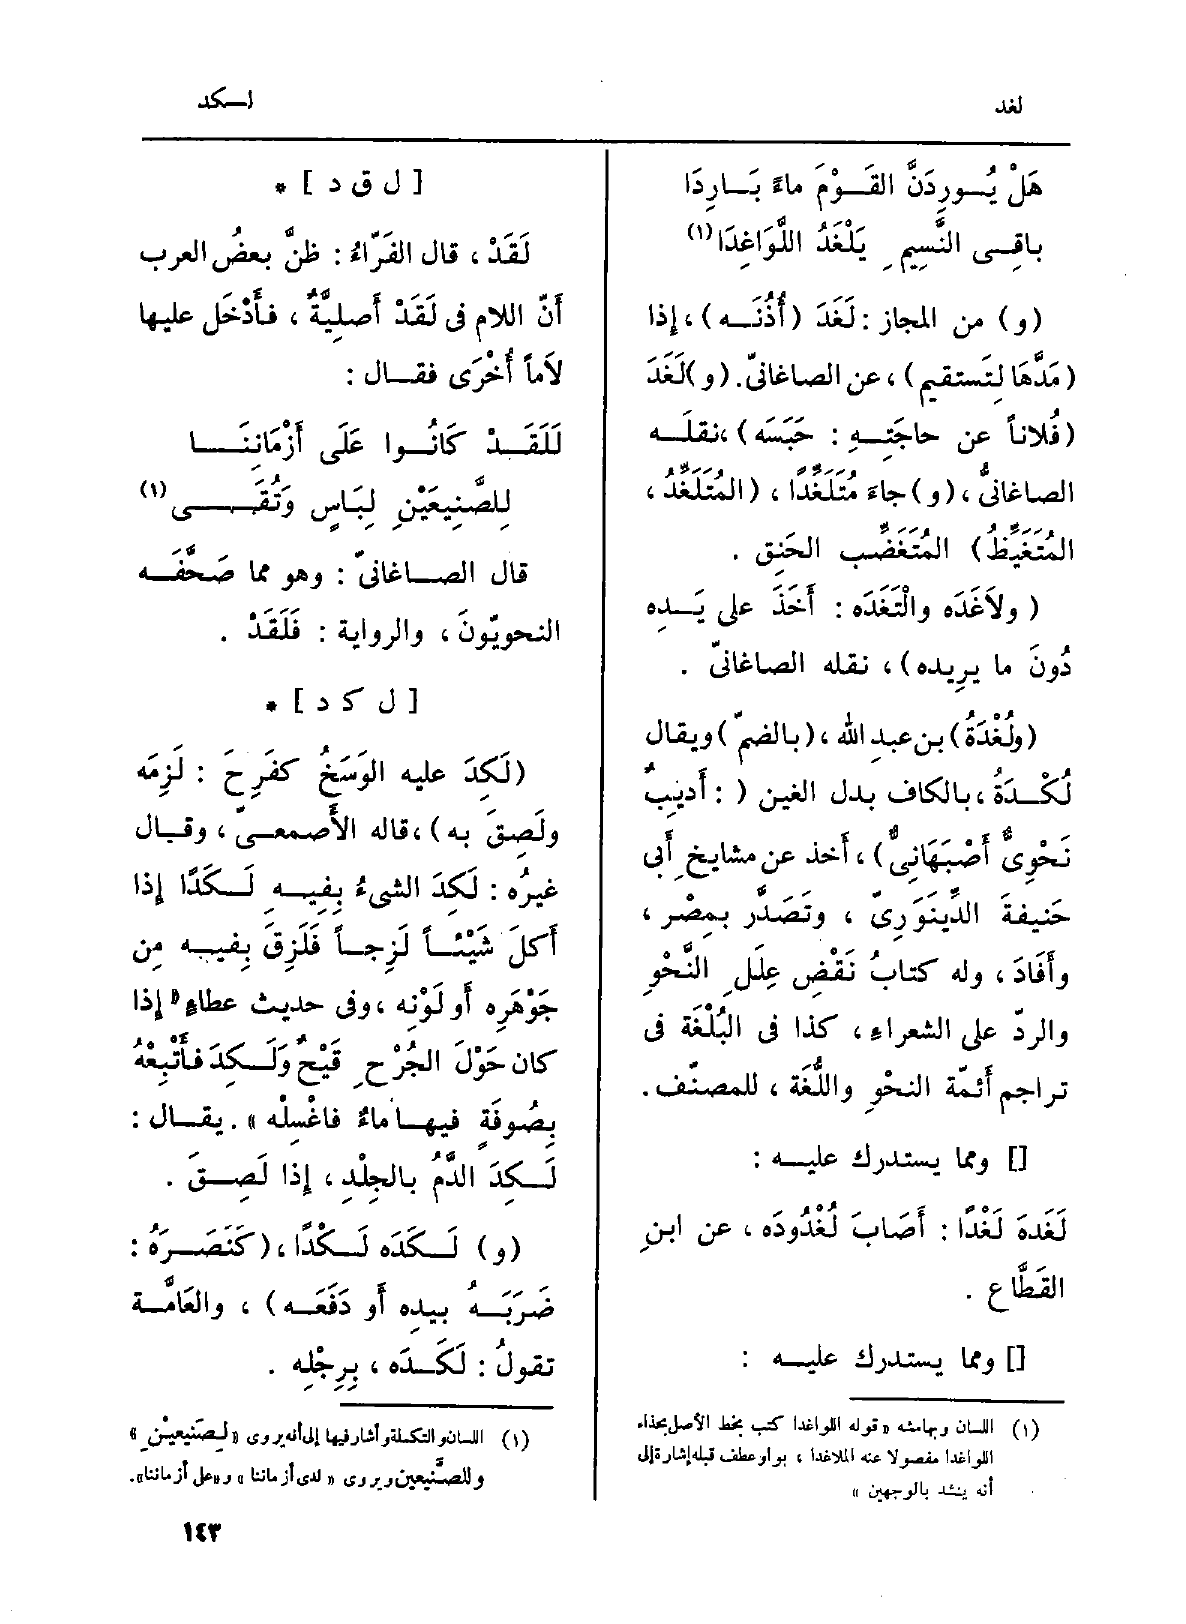 لغد
لـكد
هَلْ يُـورِدَنَّ القَـوْمَ ماءً بَـارِدَا
باقِـى النَّسِيمِ يَلْغَدُ اللَّوَاغِدَا (١)
(و) من المجاز : لَغَدَ (أُذُنَـه) ، إذا
(مَدَّهَا لِتَستقيم) ، عن الصاغانىّ. (و) لَغَدَ
(فُلاناً عن حاجَتِـهِ : حَبَسَه) ، نقلَـه
الصاغانىُّ ، (و) جاءَ مُتَلَغِّدًا ، (المُتَلَغِّدُ ،
المُتَغَيِّظُ) المُتَغَضِّب الحَنِق .
( ولاَغَدَه والْتَغَدَه : أَخَذَ على يَـدِه
دُونَ ما يرِيده) ، نقله الصاغانىّ .
(ولُغْدَةُ) بن عبدِ الله ، (بالضمّ) ويقال
لُكْـدَةُ ، بالكاف بدل الغين ( : أَديبٌ
نَحْوِىٌّ أَصْبَهَانِىٌّ) ، أَخذ عن مشايخِ أَبى
حَنيفةَ الدِّينَوَرِىّ ، وتَصَدَّر بمِصْر ،
وأَفَادَ ، وله كتابُ نَقْضِ عِلَلِ النَّحْوِ
والردّ على الشعراءِ ، كذا فى البُلْغَة فى
تراجم أَئمّة النحْوِ واللُّغَة ، للمصنّف .
[] ومما يستدرك عليـه :
لَغَدهَ لَغْدًا : أَصَابَ لُغْدُودَه ، عن ابنِ
القَطَّاع .
[] ومما يستدرك عليـه :
(١) اللسان وبهامشه « قوله اللواغدا كتب بخط الأصل بحذاء
اللواغدا مفصولا عنه الملاغدا ، بواو عطف قبله إشارة إلى
أنه ينشد بالوجهين »
[ ل ق د ] *
لَقَدْ ، قال الفَرّاءُ : ظنَّ بعضُ العرب
أَنّ اللام فى لَقَدْ أَصليَّةٌ ، فأَدْخَل عليها
لاَماً أُخْرَى فقـال :
لَلَقَـدْ كَانُـوا عَلَى أَزْمَانِنَـا
لِلصَّنِيعَيْنِ لِبَاسٍ وَتُقَـى (١)
قال الصـاغانىّ : وهو مما صَحَّفَـه
النحويّونَ ، والرواية : فَلَقَدْ .
[ ل ك د ] *
(لَكِدَ عليه الوَسَخُ كفَرِحَ : لَزِمَه
ولَصِقَ به) ، قاله الأَصمعـىّ ، وقـال
غيرُه : لَكِدَ الشىءُ بِفِيـهِ لَـكَدًا إذا
أَكلَ شَيْئـاً لَزِجـاً فَلَزِقَ بِفيـه مِن
جَوْهَرِه أَو لَوْنِه ، وفى حديث عطاءٍ « إذا
كان حَوْلَ الجُرْحِ قَيْحٌ وَلَـكِدَ فأَتْبِعْهُ
بِصُوفَةٍ فيهـا ماءٌ فاغْسِلْه » . يقـال :
لَـكِدَ الدَّمُ بالجِلْدِ ، إذا لَصِـقَ .
(و) لَـكَدَه لَـكْدًا ، (كَنَصَـرَهُ :
ضَرَبَـهُ بيدِه أَو دَفَعَـه) ، والعَامَّـة
تقولُ : لَكَـدَه ، بِرِجْلِه .
(١) اللسان والتكملة وأشار فيها إلى أنه يروى « لِصَنيعيْنِ »
وللصَّنيعين ويروى « لدى أزماننا » و«على أزماننا».
١٤٣